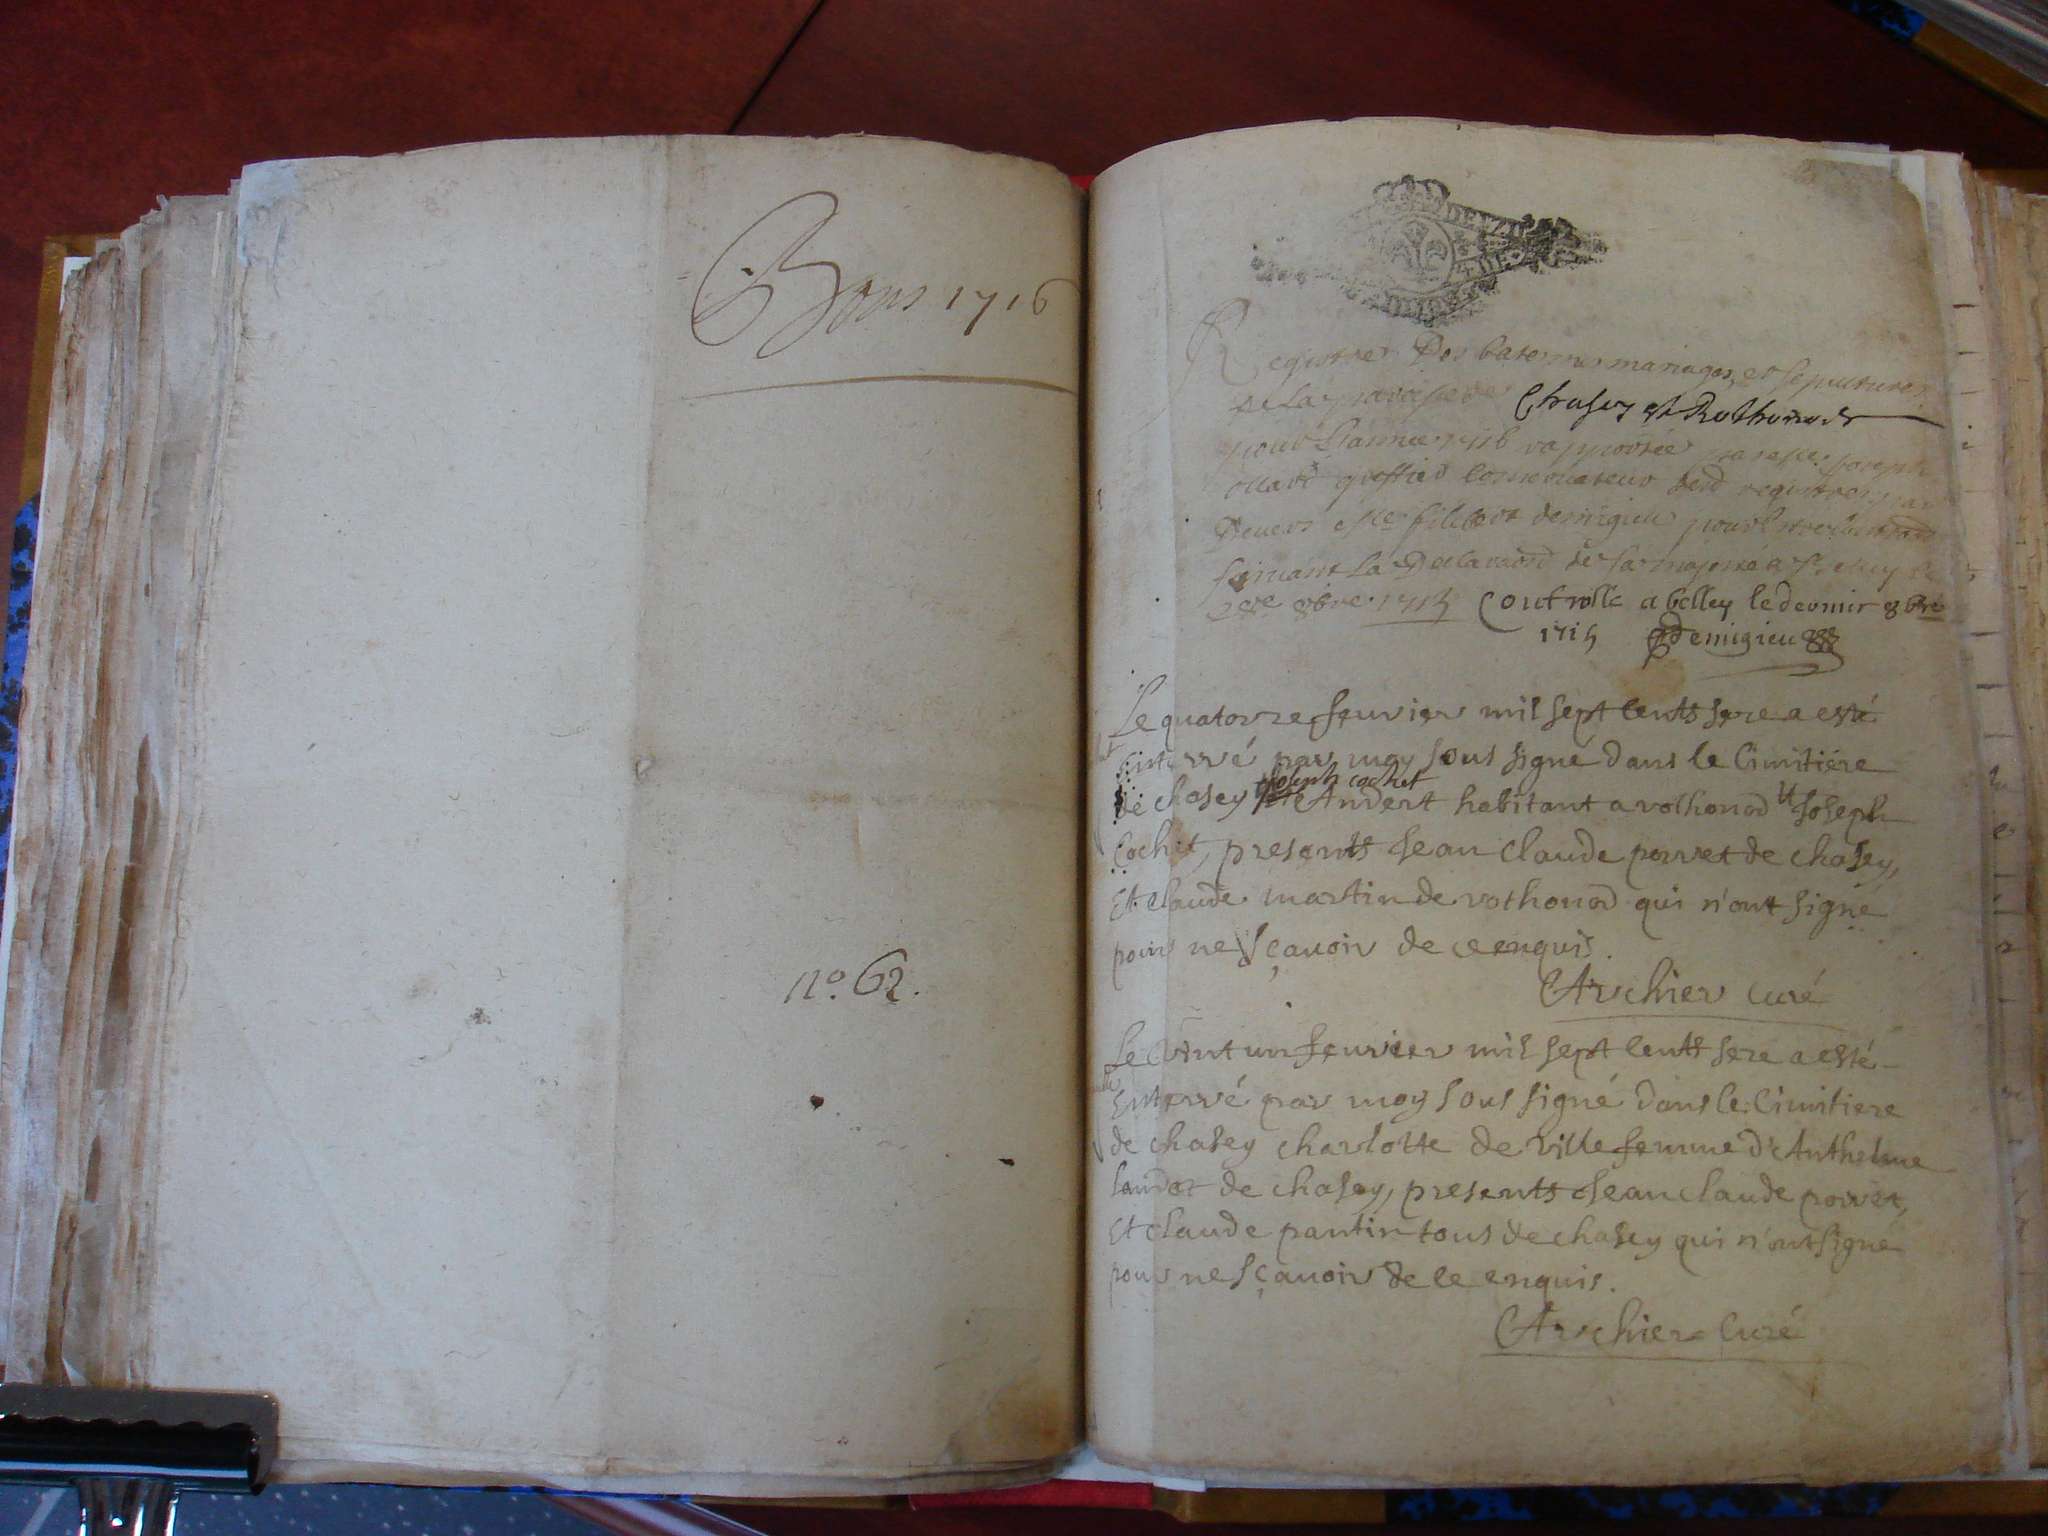 Bons 1716
no. 62.
DEUZI
DE
Registre Des batesmes mariages, et sepultures
de La parroisse de Chasey et Rothonod
pour Lannee 1716 rapportée par Joseph
greffier conservateur regitres
Devers filibert demigieu pour
suivant La Declaraond de sa majesté
8bre 1715 Controlle a belley le dernier 8bre
1715 demigieu
Le quatorze feuvier mil sept cents seze a esté
Enterré par moy sous signé dans le Cimitiere
joseph cochet
de chasey Andert habitant a rothonod et Joseph
Cochet, presents Jean Claude poivet de chasey,
Et claude martin de rothonod qui n'ont signé
pour ne sçavoir de ce enquis.
Archier curé
Le Vint un feuvier mil sept cents seze a esté
Enterré par moy sous signé dans le Cimitiere
de chasey charlotte de ville femme d'Anthelme
de chasey, presents Jean claude poivet,
Et claude pantin tous de chasey qui n'ont signé
pour ne sçavoir de ce enquis.
Archier Curé